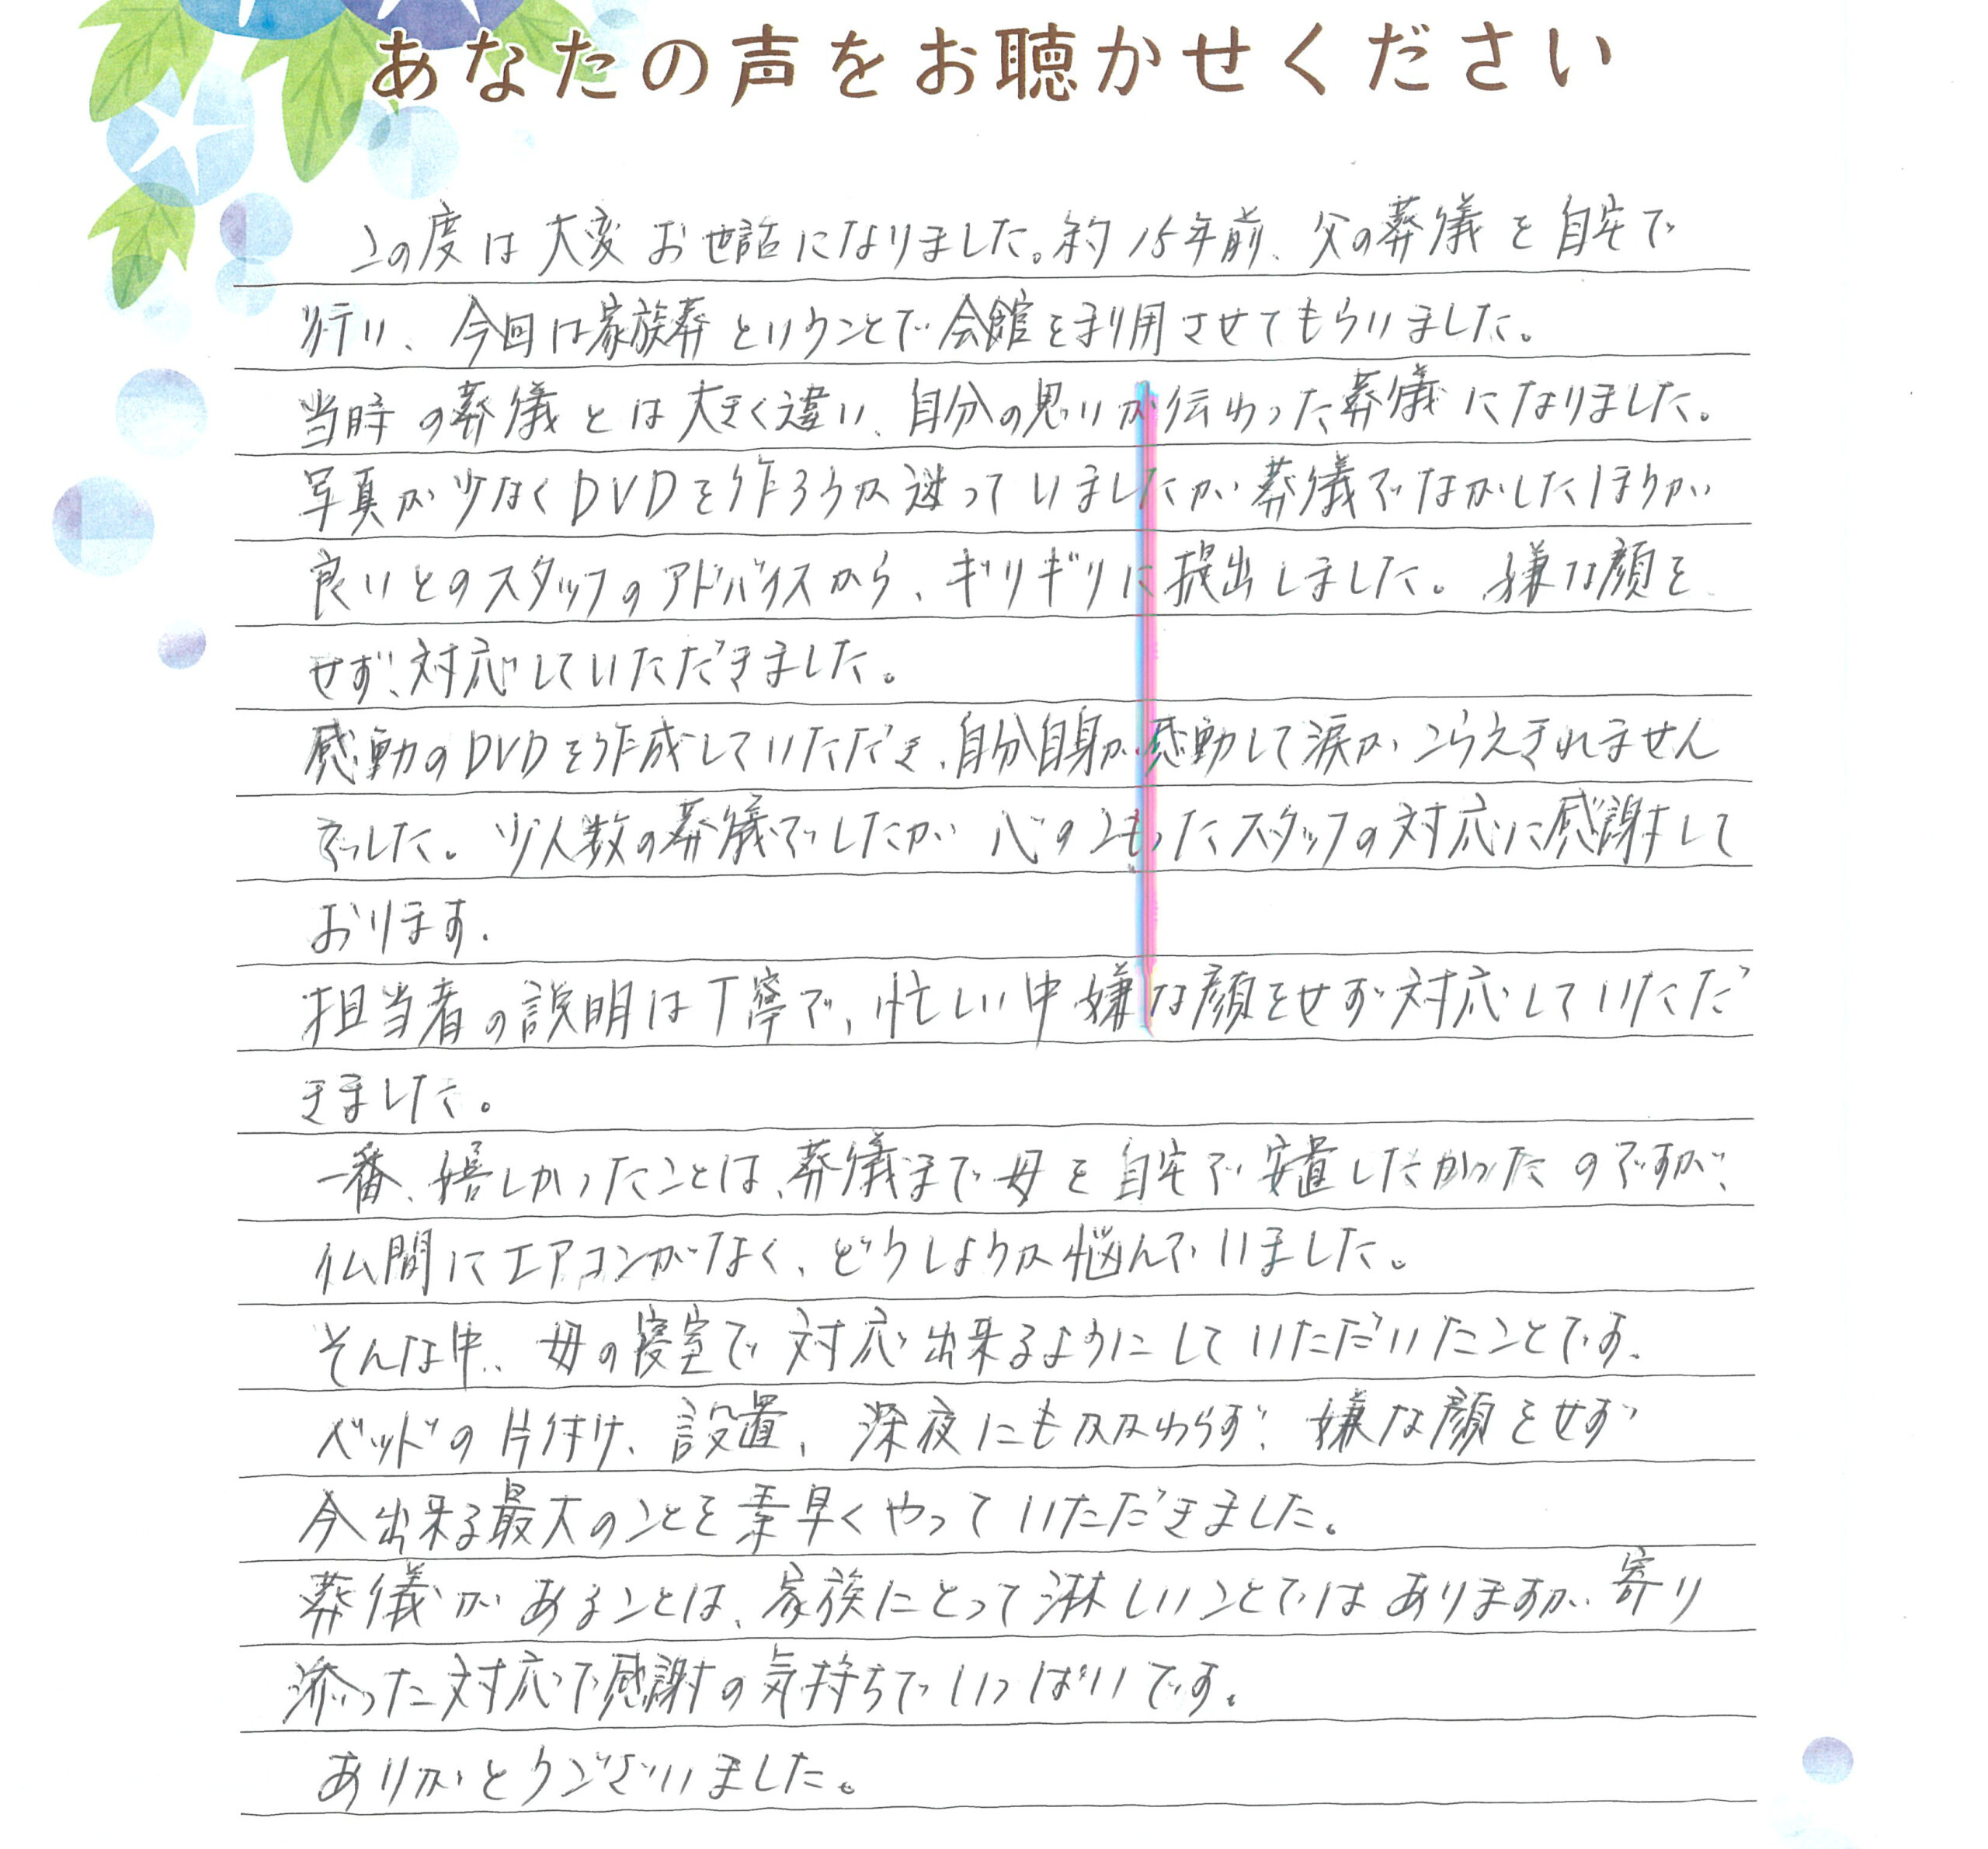 あなたの声をお聴かせください
この度は大変お世話になりました。約15年前、父の葬儀を自宅で
行い、今回は家族葬ということで会館を利用させてもらいました。
当時の葬儀とは大きく違い、自分の思いが伝わった葬儀になりました。
写真が少なくDVDを作ろうか迷っていましたが葬儀でながしたほうが
良いとのスタッフのアドバイスから、ギリギリに提出しました。嫌な顔を
せず、対応していただきました。
感動のDVDを作成していただき、自分自身が感動して涙がこらえきれません
でした。少人数の葬儀でしたが心のこもったスタッフの対応に感謝して
おります。
担当者の説明は丁寧で、忙しい中嫌な顔をせず対応していただ
きました。
一番、嬉しかったことは、葬儀まで母を自宅で安置したかったのですが、
仏間にエアコンがなく、どうしようか悩んでいました。
そんな中、母の寝室で対応出来るようにしていただいたことです。
ベッドの片付け、設置、深夜にも及わらず、嫌な顔をせず
今出来る最大のことを素早くやっていただきました。
葬儀があることは、家族にとって淋しいことではありますが、寄り
添った対応で感謝の気持ちでいっぱいです。
ありがとうございました。